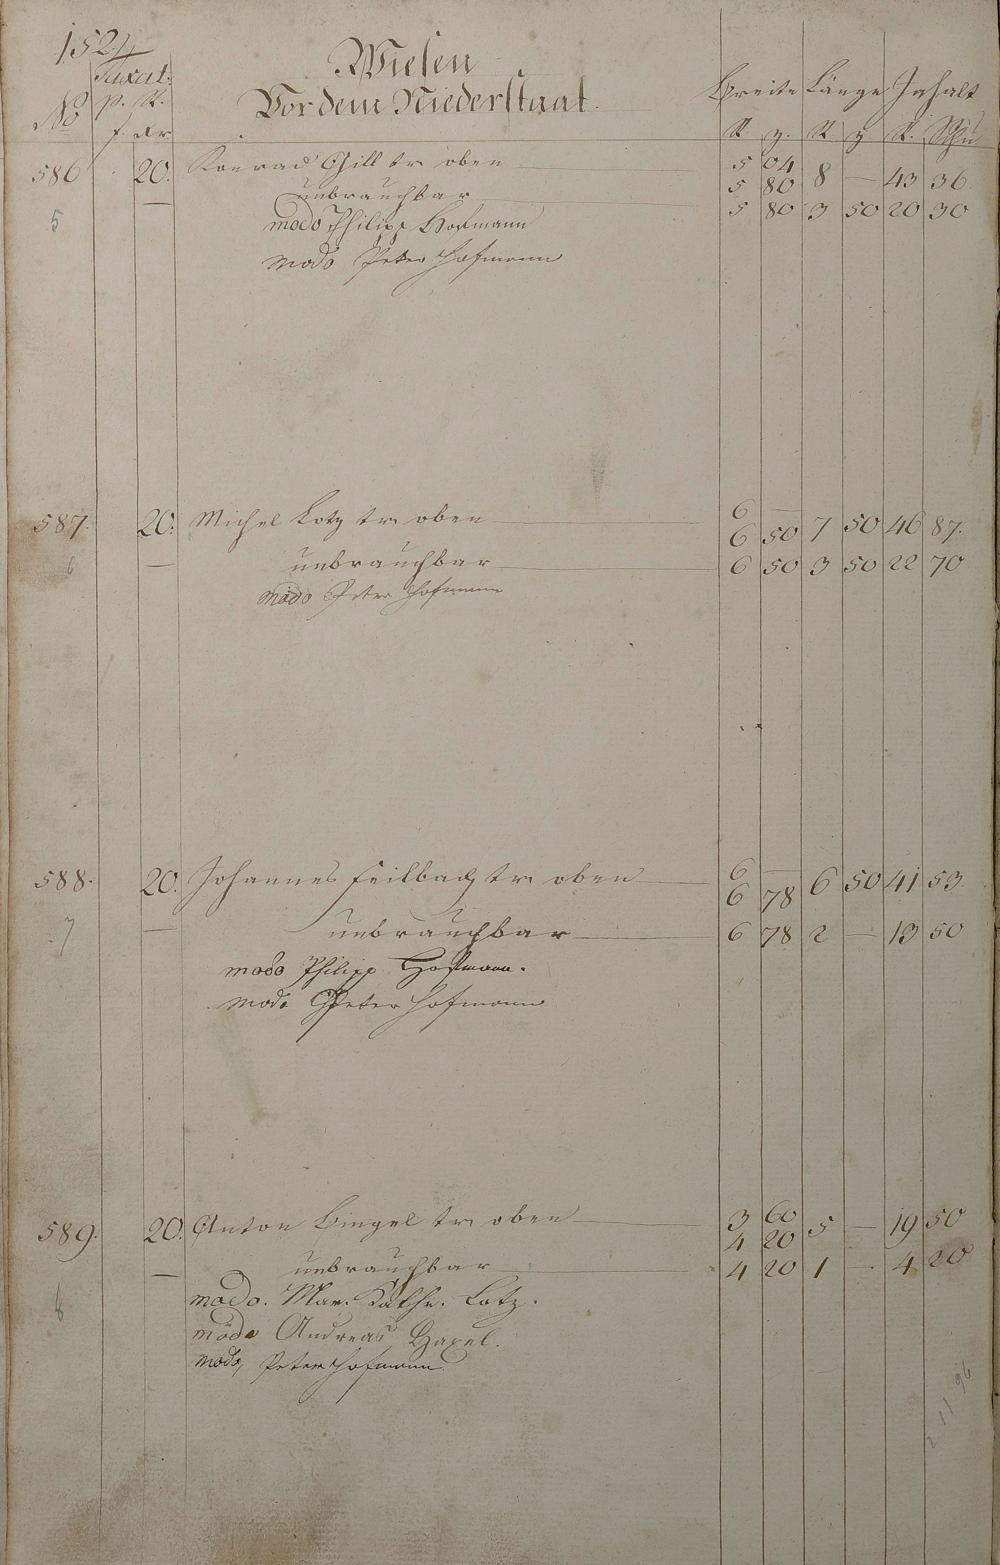 1524
Wiesen
Taxat.
Vor dem Niederstaat.
Breite Länge Inhalt
No p. R.
f alr
R z. R z R. Schu
586 20. Konrad Gill tr. oben 5 04 8 — 43 36
5 80
unbrauchbar 5 80 3 50 20 30
5 modo Philipp Hofmann
modo Peter Hofmann
587. 20. Michel Lotz tr. oben 6 — 7 50 46 87.
6 50
6 — unbrauchbar 6 50 3 50 22 70
modo Peter Hofmann
588. 20. Johannes Feilbach tr. oben 6 — 6 50 41 53
6 78
7 — unbrauchbar 6 78 2 — 13 50
modo Philipp Hofmann.
modo Peter Hofmann
589. 20. Anton Bingel tr. oben 3 60 5 — 19 50
4 20
— unbrauchbar 4 20 1 — 4 20
8 modo. Mar. Kathr. Lotz.
modo Andreas Hazel.
modo, Peter Hofmann
2 11 96